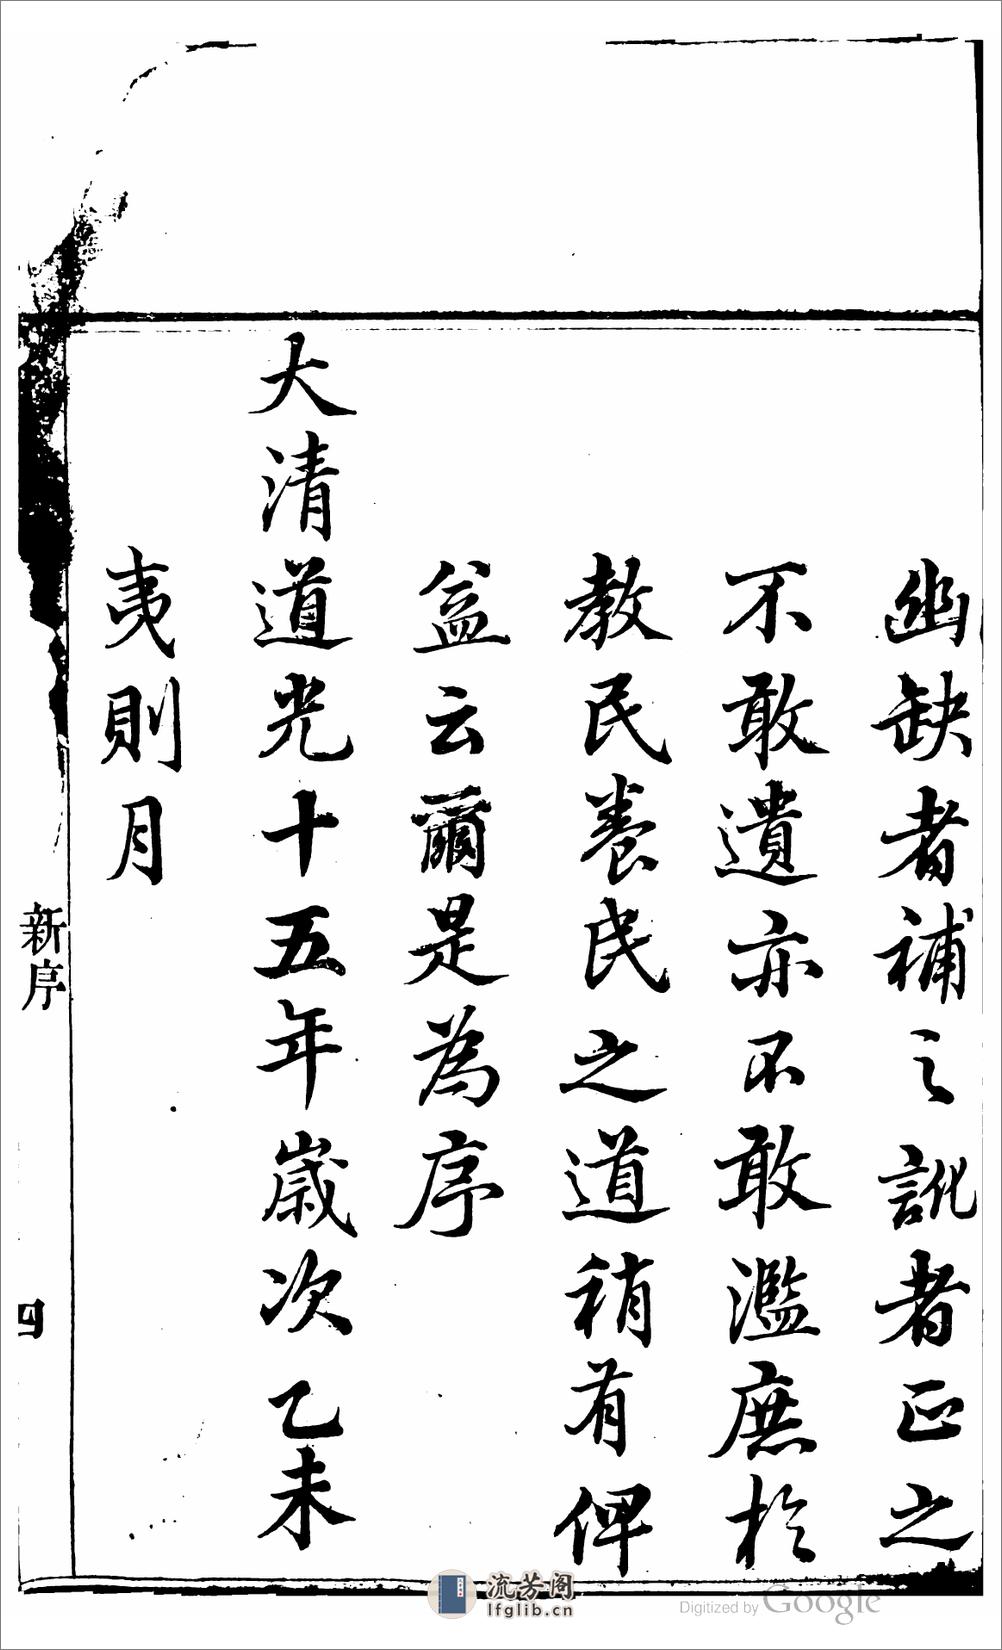 幽缺者補之訛者正之
不敢遺亦不敢濫庶於
教民養民之道稍有俾
益云爾是為序
大清道光十五年歲次乙未
夷則月
新序
四
流芳阁
lfglib.cn
Digitized by Google